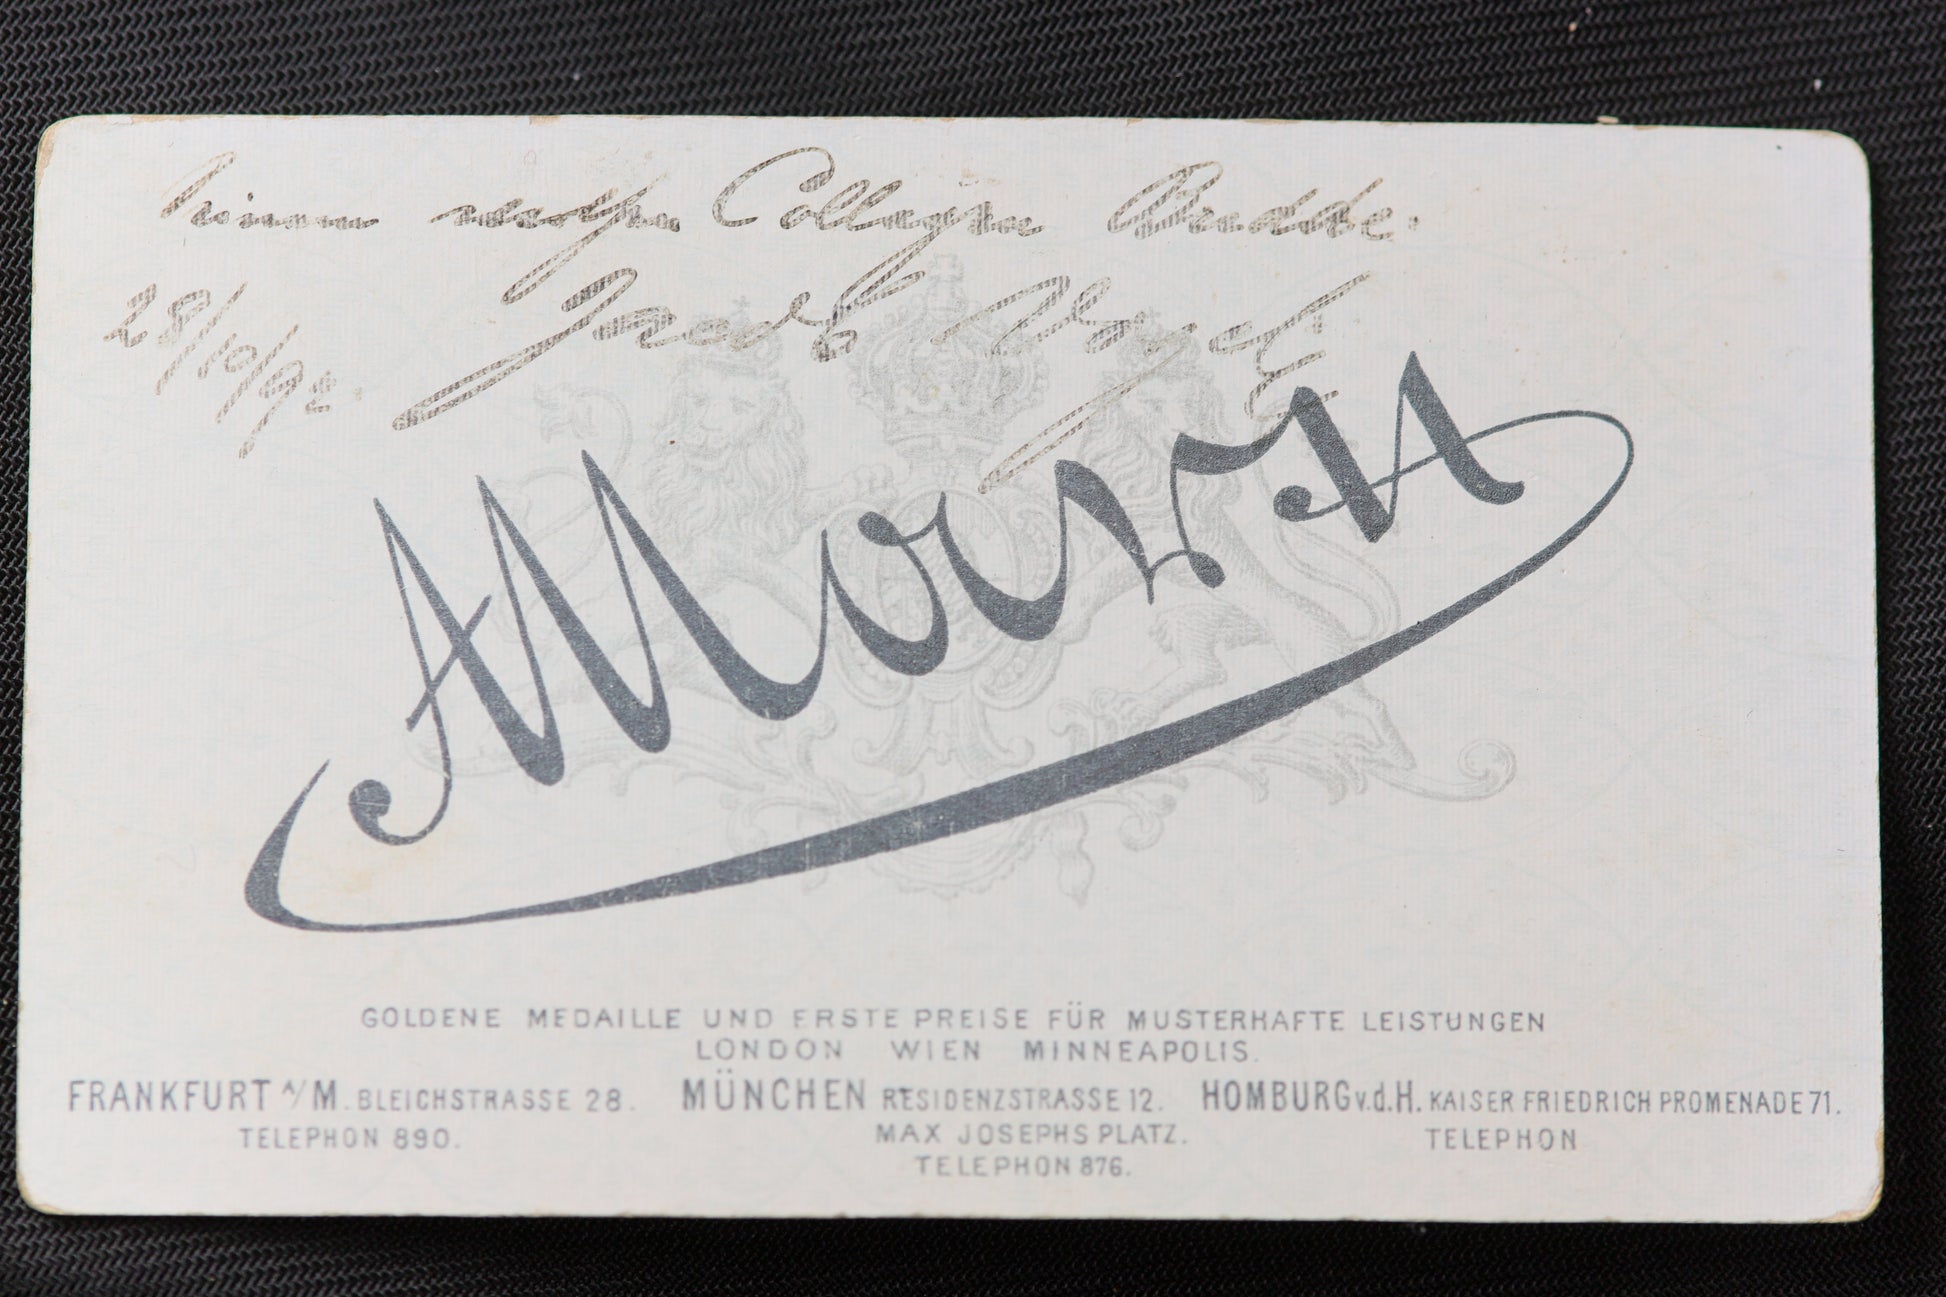 Collegin Budde.
28/10/92.
A Moritz
GOLDENE MEDAILLE UND ERSTE PREISE FÜR MUSTERHAFTE LEISTUNGEN
LONDON WIEN MINNEAPOLIS.
FRANKFURT A/M. BLEICHSTRASSE 28. MÜNCHEN RESIDENZSTRASSE 12. HOMBURG v.d.H. KAISER FRIEDRICH PROMENADE 71.
TELEPHON 890. MAX JOSEPHS PLATZ. TELEPHON
TELEPHON 876.